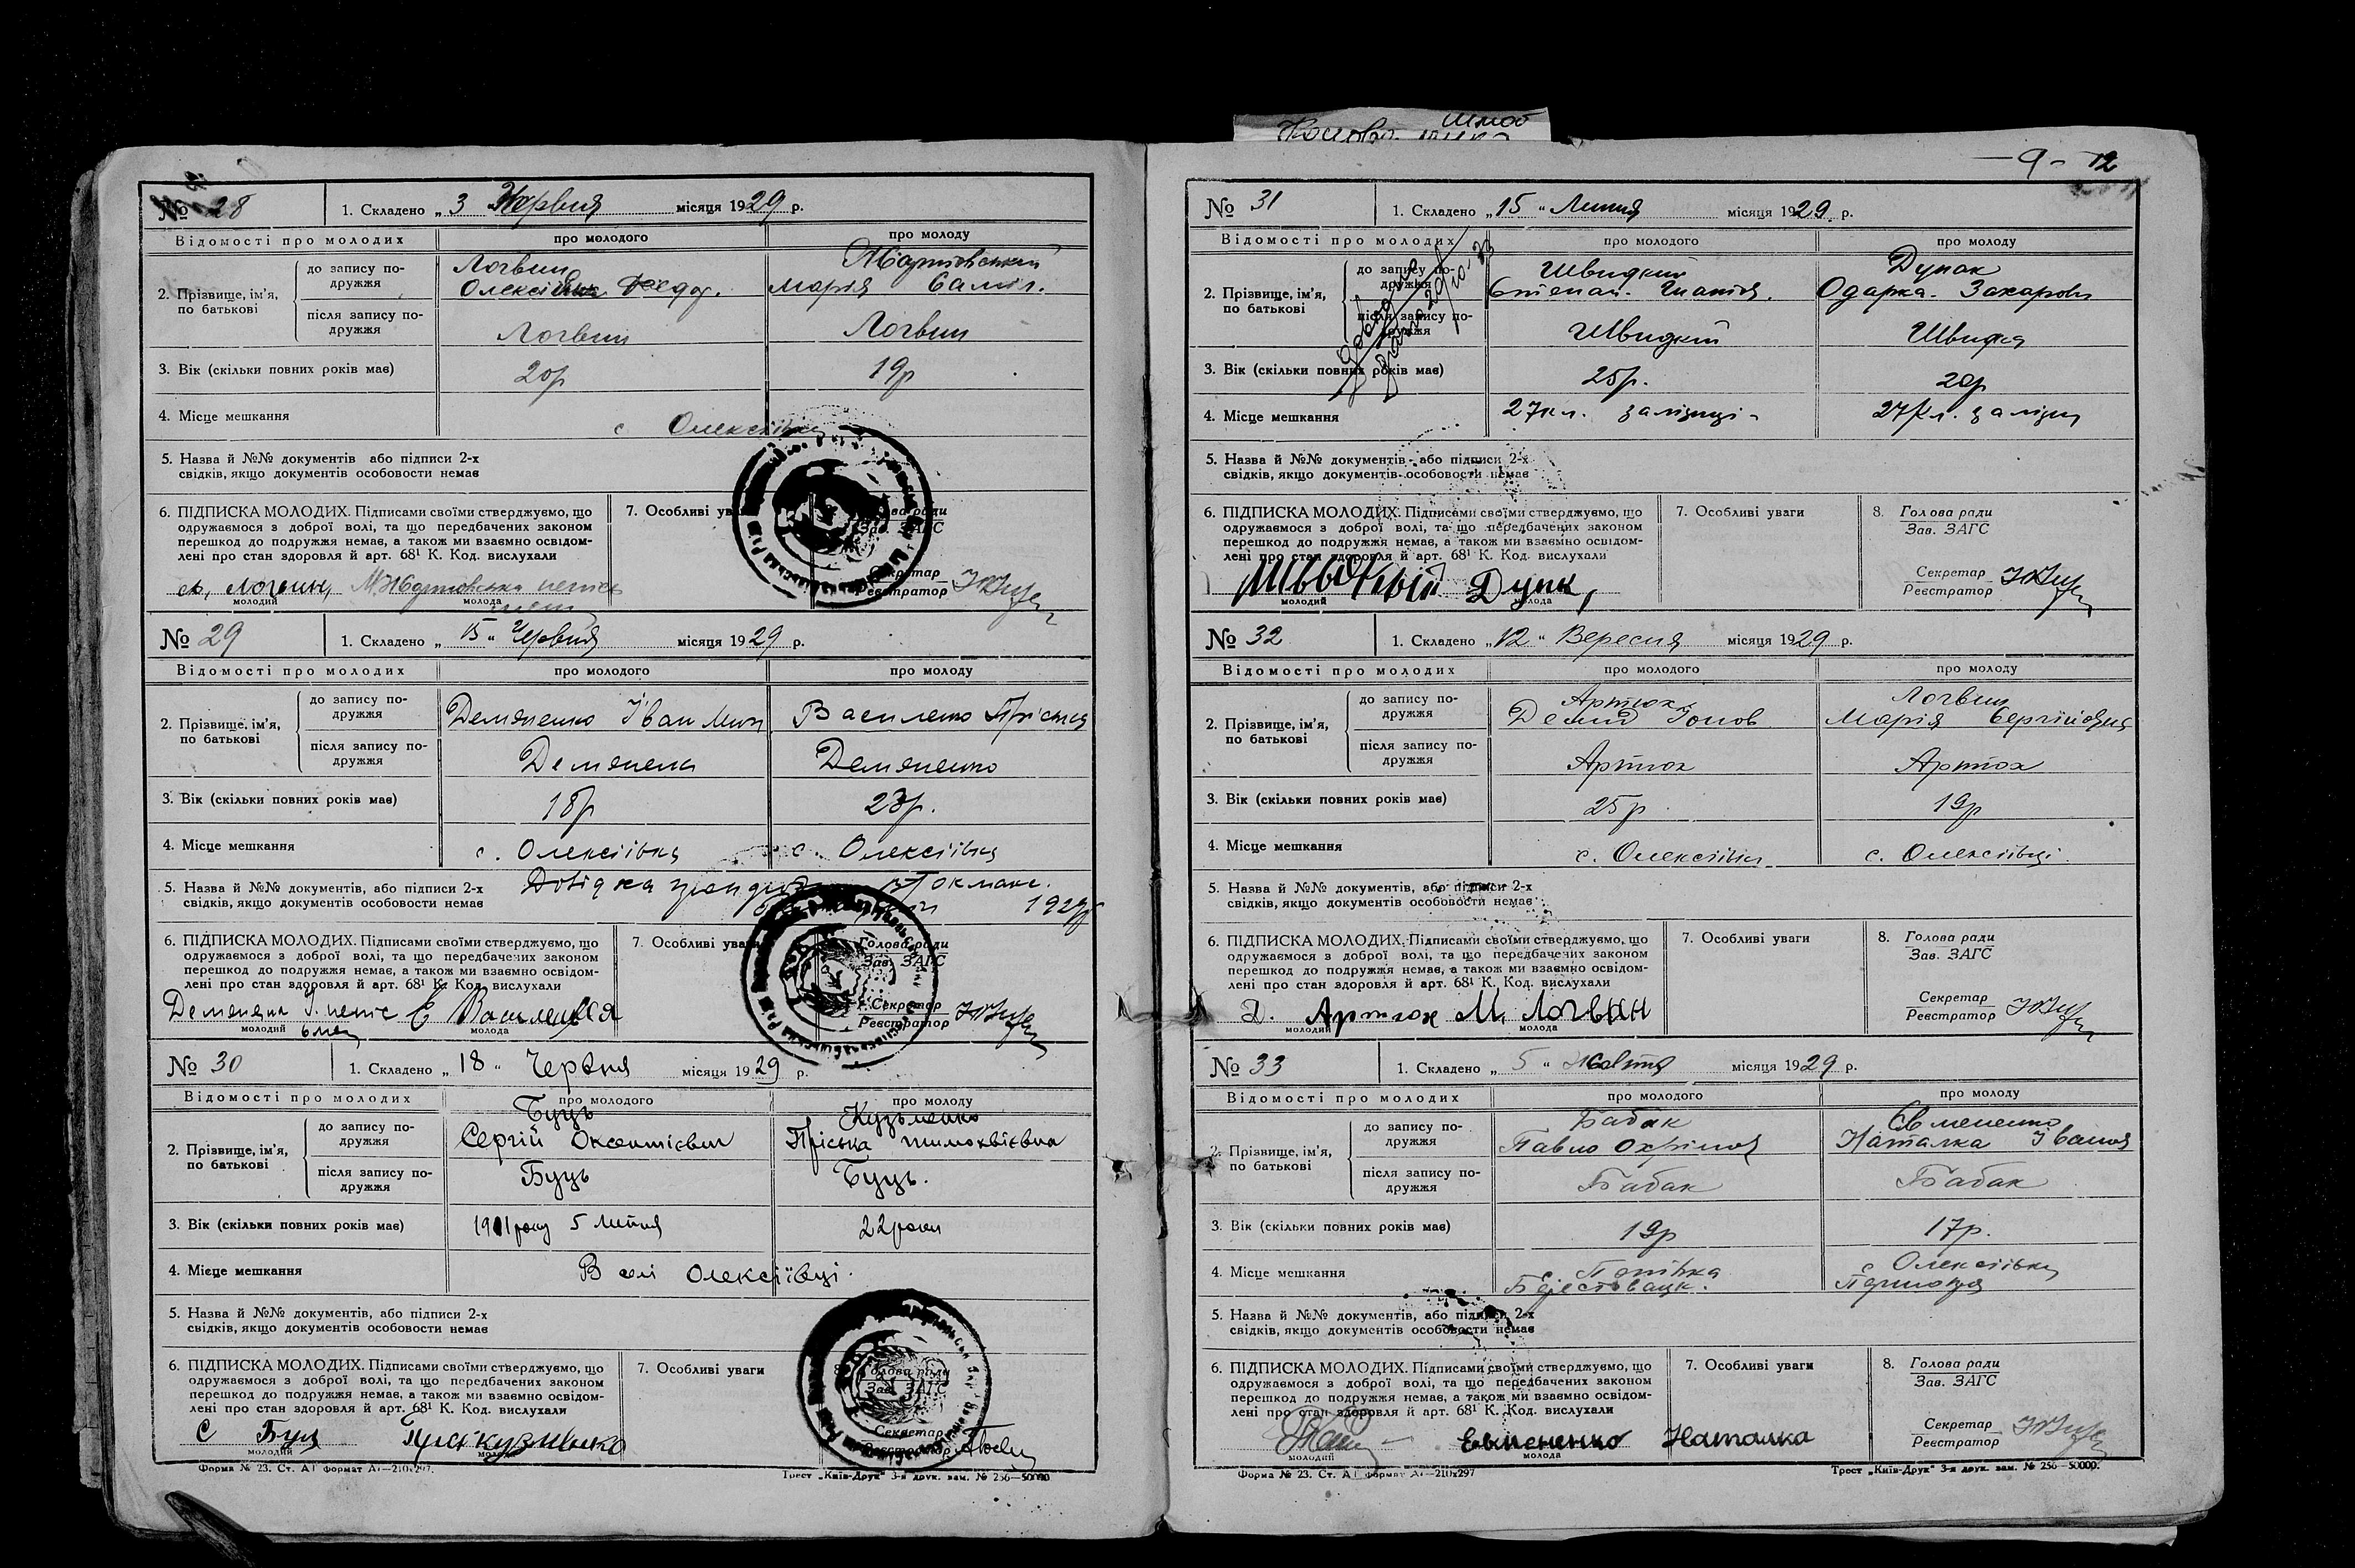 — 9 - 12
№ 28 1. Складено „ 3 Червня місяця 1929 р.
Відомості про молодих про молодого про молоду
2. Прізвище, ім'я, по батькові
до запису по-
дружжя
Логвин
Олексій Федор.
Жортовська
Марія Саміл.
після запису по-
дружжя
Логвин Логвин
3. Вік (скільки повних років має) 20р 19р
4. Місце мешкання с Олексіївка
5. Назва й №№ документів або підписи 2-х
свідків, якщо документів особовости немає
6. ПІДПИСКА МОЛОДИХ. Підписами своїми стверджуємо, що
одружаємося з доброї волі, та що передбачених законом
перешкод до подружжя немає, а також ми взаємно освідом-
лені про стан здоровля й арт. 68¹ К. Код. вислухали
Логвин,
молодий молода
7. Особливі уваги
Голова ради
Зав. ЗАГС
Секретар
Реєстратор
№ 29 1. Складено „ 15 “ Червня місяця 1929 р.
Відомості про молодих про молодого про молоду
2. Прізвище, ім'я, по батькові
до запису по-
дружжя
Демяненко Іван Василенко Пріська
після запису по-
дружжя
Демяненко Демяненко
3. Вік (скільки повних років має) 18р 23р.
4. Місце мешкання с. Олексіївка с. Олексіївка
5. Назва й №№ документів, або підписи 2-х
свідків, якщо документів особовости немає
Довідка Токмак.
6. ПІДПИСКА МОЛОДИХ. Підписами своїми стверджуємо, що
одружаємося з доброї волі, та що передбачених законом
перешкод до подружжя немає, а також ми взаємно освідом-
лені про стан здоровля й арт. 68¹ К. Код. вислухали
молодий молода
7. Особливі уваги
Голова ради
Зав. ЗАГС
Секретар
Реєстратор
№ 30 1. Складено „ 18 “ Червня місяця 1929 р.
Відомості про молодих про молодого про молоду
2. Прізвище, ім'я, по батькові
до запису по-
дружжя
Буць
Сергій Оксентієвич
Кузьменко
Пріська Тимохвієвна
після запису по-
дружжя
Буць Буць.
3. Вік (скільки повних років має) 1901 року 5 липня 22 роки
4. Місце мешкання В селі Олексіївці.
5. Назва й №№ документів, або підписи 2-х
свідків, якщо документів особовости немає
6. ПІДПИСКА МОЛОДИХ. Підписами своїми стверджуємо, що
одружаємося з доброї волі, та що передбачених законом
перешкод до подружжя немає, а також ми взаємно освідом-
лені про стан здоровля й арт. 68¹ К. Код. вислухали
С Буц
молодий
7. Особливі уваги
Голова ради
Зав. ЗАГС
Секретар
Реєстратор
Форма № 23. Ст. А1 формат А4—210х297. Трест „Київ-Друк“ 3-я друк. зам. № 256—50000
№ 31 1. Складено „ 15 “ Липня місяця 1929 р.
Відомості про молодих про молодого про молоду
2. Прізвище, ім'я, по батькові
до запису по-
дружжя
Швидкий
Степан. Гнатія.
Дупак
Одарка. Захаровн
після запису по-
дружжя
Швидкий Швидка
3. Вік (скільки повних років має) 25р. 20р
4. Місце мешкання 27кл. залізниці 27кл. залізн
5. Назва й №№ документів, або підписи 2-х
свідків, якщо документів особовости немає
6. ПІДПИСКА МОЛОДИХ. Підписами своїми стверджуємо, що
одружаємося з доброї волі, та що передбачених законом
перешкод до подружжя немає, а також ми взаємно освідом-
лені про стан здоровля й арт. 68¹ К. Код. вислухали
Дупк,
молодий молода
7. Особливі уваги
8. Голова ради
Зав. ЗАГС
Секретар
Реєстратор
№ 32 1. Складено „ 12 “ Вересня місяця 1929 р.
Відомості про молодих про молодого про молоду
2. Прізвище, ім'я, по батькові
до запису по-
дружжя
Артюх
Демид Іонов
Логвин
Марія Сергійовна
після запису по-
дружжя
Артюх Артюх
3. Вік (скільки повних років має) 25р 19р
4. Місце мешкання с. Олексіївки с. Олексіївці
5. Назва й №№ документів, або підписи 2-х
свідків, якщо документів особовости немає
6. ПІДПИСКА МОЛОДИХ. Підписами своїми стверджуємо, що
одружаємося з доброї волі, та що передбачених законом
перешкод до подружжя немає, а також ми взаємно освідом-
лені про стан здоровля й арт. 68¹ К. Код. вислухали
Д. Артюх М. Логвин
молодий молода
7. Особливі уваги
8. Голова ради
Зав. ЗАГС
Секретар
Реєстратор
№ 33 1. Складено „ 5 “ Жовтня місяця 1929 р.
Відомості про молодих про молодого про молоду
2. Прізвище, ім'я, по батькові
до запису по-
дружжя
Бабак
Павло Охрімов
Євмененко
Наталка Іванов
після запису по-
дружжя
Бабак Бабак
3. Вік (скільки повних років має) 19р 17р.
4. Місце мешкання
с Олексіївка
5. Назва й №№ документів, або підписи 2-х
свідків, якщо документів особовости немає
6. ПІДПИСКА МОЛОДИХ. Підписами своїми стверджуємо, що
одружаємося з доброї волі, та що передбачених законом
перешкод до подружжя немає, а також ми взаємно освідом-
лені про стан здоровля й арт. 68¹ К. Код. вислухали
Евмененко Наталка
молодий молода
7. Особливі уваги
8. Голова ради
Зав. ЗАГС
Секретар
Реєстратор
Форма № 23. Ст. А1 формат А4—210х297 Трест „Київ-Друк“ 3-я друк. зам. № 256—50000.